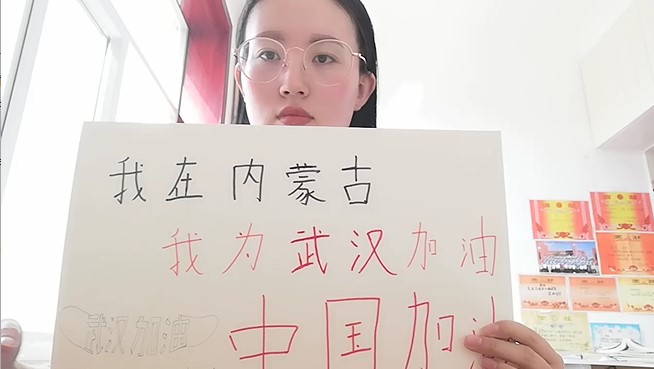 我在内蒙古
我为武汉加油
武汉加油
中国加油